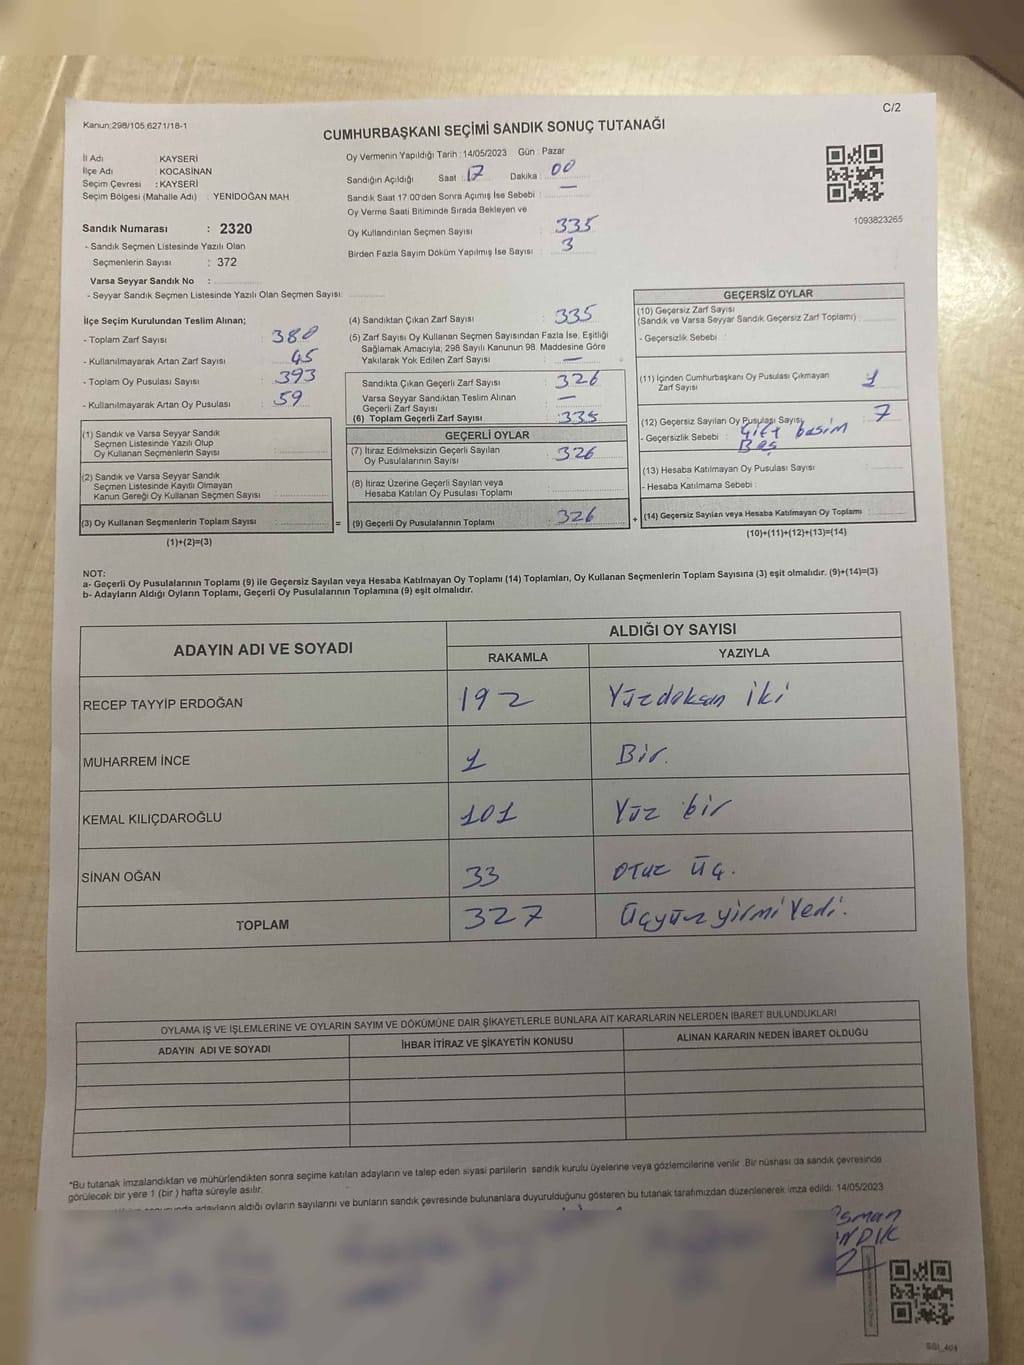 C/2
Kanun;298/105,6271/18-1
CUMHURBAŞKANI SEÇİMİ SANDIK SONUÇ TUTANAĞI
İl Adı : KAYSERİ
İlçe Adı : KOCASİNAN
Seçim Çevresi : KAYSERİ
Seçim Bölgesi (Mahalle Adı) : YENİDOĞAN MAH.
Oy Vermenin Yapıldığı Tarih : 14/05/2023 Gün : Pazar
Sandığın Açıldığı Saat : 17 Dakika : 00
Sandık Saat 17:00'den Sonra Açımış İse Sebebi : —
Oy Verme Saati Bitiminde Sırada Bekleyen ve
Oy Kullandırılan Seçmen Sayısı : 335
Birden Fazla Sayım Döküm Yapılmış İse Sayısı : 3
1093823265
Sandık Numarası : 2320
- Sandık Seçmen Listesinde Yazılı Olan
Seçmenlerin Sayısı : 372
Varsa Seyyar Sandık No :
- Seyyar Sandık Seçmen Listesinde Yazılı Olan Seçmen Sayısı:
İlçe Seçim Kurulundan Teslim Alınan;
- Toplam Zarf Sayısı : 380
- Kullanılmayarak Artan Zarf Sayısı : 45
- Toplam Oy Pusulası Sayısı : 393
- Kullanılmayarak Artan Oy Pusulası : 59
(1) Sandık ve Varsa Seyyar Sandık
Seçmen Listesinde Yazılı Olup
Oy Kullanan Seçmenlerin Sayısı :
(2) Sandık ve Varsa Seyyar Sandık
Seçmen Listesinde Kayıtlı Olmayan
Kanun Gereği Oy Kullanan Seçmen Sayısı :
(3) Oy Kullanan Seçmenlerin Toplam Sayısı :
(1)+(2)=(3)
(4) Sandıktan Çıkan Zarf Sayısı : 335
(5) Zarf Sayısı Oy Kullanan Seçmen Sayısından Fazla İse, Eşitliği
Sağlamak Amacıyla, 298 Sayılı Kanunun 98. Maddesine Göre
Yakılarak Yok Edilen Zarf Sayısı : —
Sandıkta Çıkan Geçerli Zarf Sayısı : 326
Varsa Seyyar Sandıktan Teslim Alınan
Geçerli Zarf Sayısı : —
(6) Toplam Geçerli Zarf Sayısı : 335
GEÇERLİ OYLAR
(7) İtiraz Edilmeksizin Geçerli Sayılan
Oy Pusulalarının Sayısı : 326
(8) İtiraz Üzerine Geçerli Sayılan veya
Hesaba Katılan Oy Pusulası Toplamı :
= (9) Geçerli Oy Pusulalarının Toplamı : 326 +
GEÇERSİZ OYLAR
(10) Geçersiz Zarf Sayısı
(Sandık ve Varsa Seyyar Sandık Geçersiz Zarf Toplamı) :
- Geçersizlik Sebebi :
(11) İçinden Cumhurbaşkanı Oy Pusulası Çıkmayan
Zarf Sayısı : 1
(12) Geçersiz Sayılan Oy Pusulası Sayısı : 7
- Geçersizlik Sebebi : Çift basim
Boş
(13) Hesaba Katılmayan Oy Pusulası Sayısı :
- Hesaba Katılmama Sebebi :
(14) Geçersiz Sayılan veya Hesaba Katılmayan Oy Toplamı :
(10)+(11)+(12)+(13)=(14)
NOT:
a- Geçerli Oy Pusulalarının Toplamı (9) ile Geçersiz Sayılan veya Hesaba Katılmayan Oy Toplamı (14) Toplamları, Oy Kullanan Seçmenlerin Toplam Sayısına (3) eşit olmalıdır. (9)+(14)=(3)
b- Adayların Aldığı Oyların Toplamı, Geçerli Oy Pusulalarının Toplamına (9) eşit olmalıdır.
ADAYIN ADI VE SOYADI
ALDIĞI OY SAYISI
RAKAMLA YAZIYLA
RECEP TAYYİP ERDOĞAN 192 Yüzdoksan iki
MUHARREM İNCE 1 Bir.
KEMAL KILIÇDAROĞLU 101 Yüz bir
SİNAN OĞAN 33 Otuz üç.
TOPLAM 327 Üçyüz yirmi Yedi.
OYLAMA İŞ VE İŞLEMLERİNE VE OYLARIN SAYIM VE DÖKÜMÜNE DAİR ŞİKAYETLERLE BUNLARA AİT KARARLARIN NELERDEN İBARET BULUNDUKLARI
ADAYIN ADI VE SOYADI İHBAR İTİRAZ VE ŞİKAYETİN KONUSU ALINAN KARARIN NEDEN İBARET OLDUĞU
*Bu tutanak imzalandıktan ve mühürlendikten sonra seçime katılan adayların ve talep eden siyasi partilerin sandık kurulu üyelerine veya gözlemcilerine verilir. Bir nüshası da sandık çevresinde
görülecek bir yere 1 (bir ) hafta süreyle asılır.
adayların aldığı oyların sayılarını ve bunların sandık çevresinde bulunanlara duyurulduğunu gösteren bu tutanak tarafımızdan düzenlenerek imza edildi. 14/05/2023